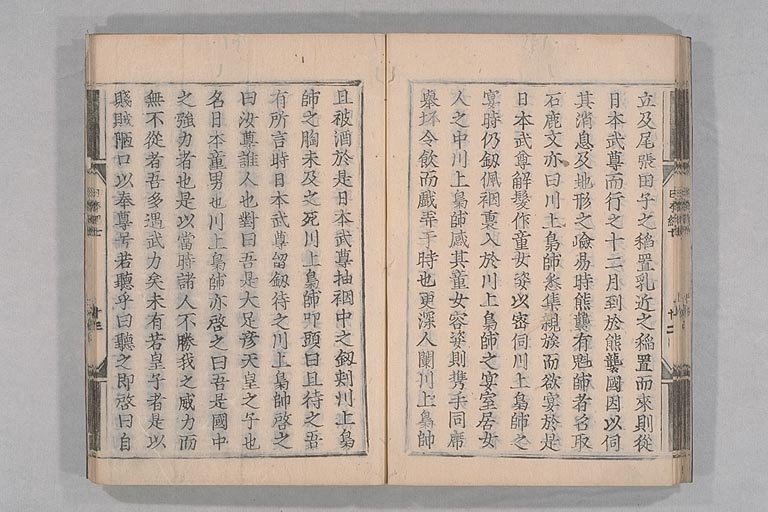 立及尾張田子之稻置乳近之稻置而來則從
日本武尊而行之十二月到於熊襲國因以伺
其消息及地形之嶮易時熊襲有魁帥者名取
石鹿文亦曰川上梟帥悉集親族而欲宴於是
日本武尊解髮作童女姿以密伺川上梟帥之
宴時仍劔佩裀裏入於川上梟帥之宴室居女
人之中川上梟帥感其童女容姿則携手同席
擧坏令飲而戲弄于時也更深人闌川上梟帥
且被酒於是日本武尊抽裀中之劔刺川上梟
帥之胸未及之死川上梟帥叩頭曰且待之吾
有所言時日本武尊留劔待之川上梟帥啓之
曰汝尊誰人也對曰吾是大足彦天皇之子也
名日本童男也川上梟帥亦啓之曰吾是國中
之強力者也是以當時諸人不勝我之威力而
無不從者吾多遇武力矣未有若皇子者是以
賤賊陋口以奉尊号若聽乎曰聽之即啓曰自